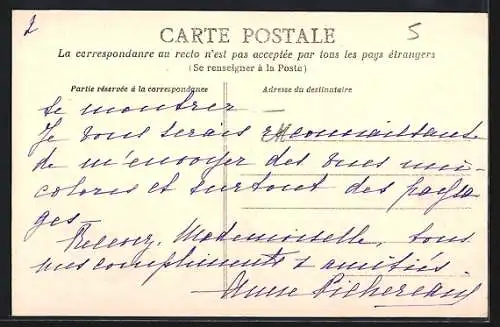 2
5
CARTE POSTALE
La correspondance au recto n'est pas acceptée par tous les pays étrangers
(Se renseigner à la Poste)
Partie réservée à la correspondance
Adresse du destinataire
se montrer
Je vous serais reconnaissante
de m'envoyer des vues uni-
colores et surtout des paysa
ges
Recevez, Mademoiselle, tous
mes compliments & amitiés.
Anne Pichereau